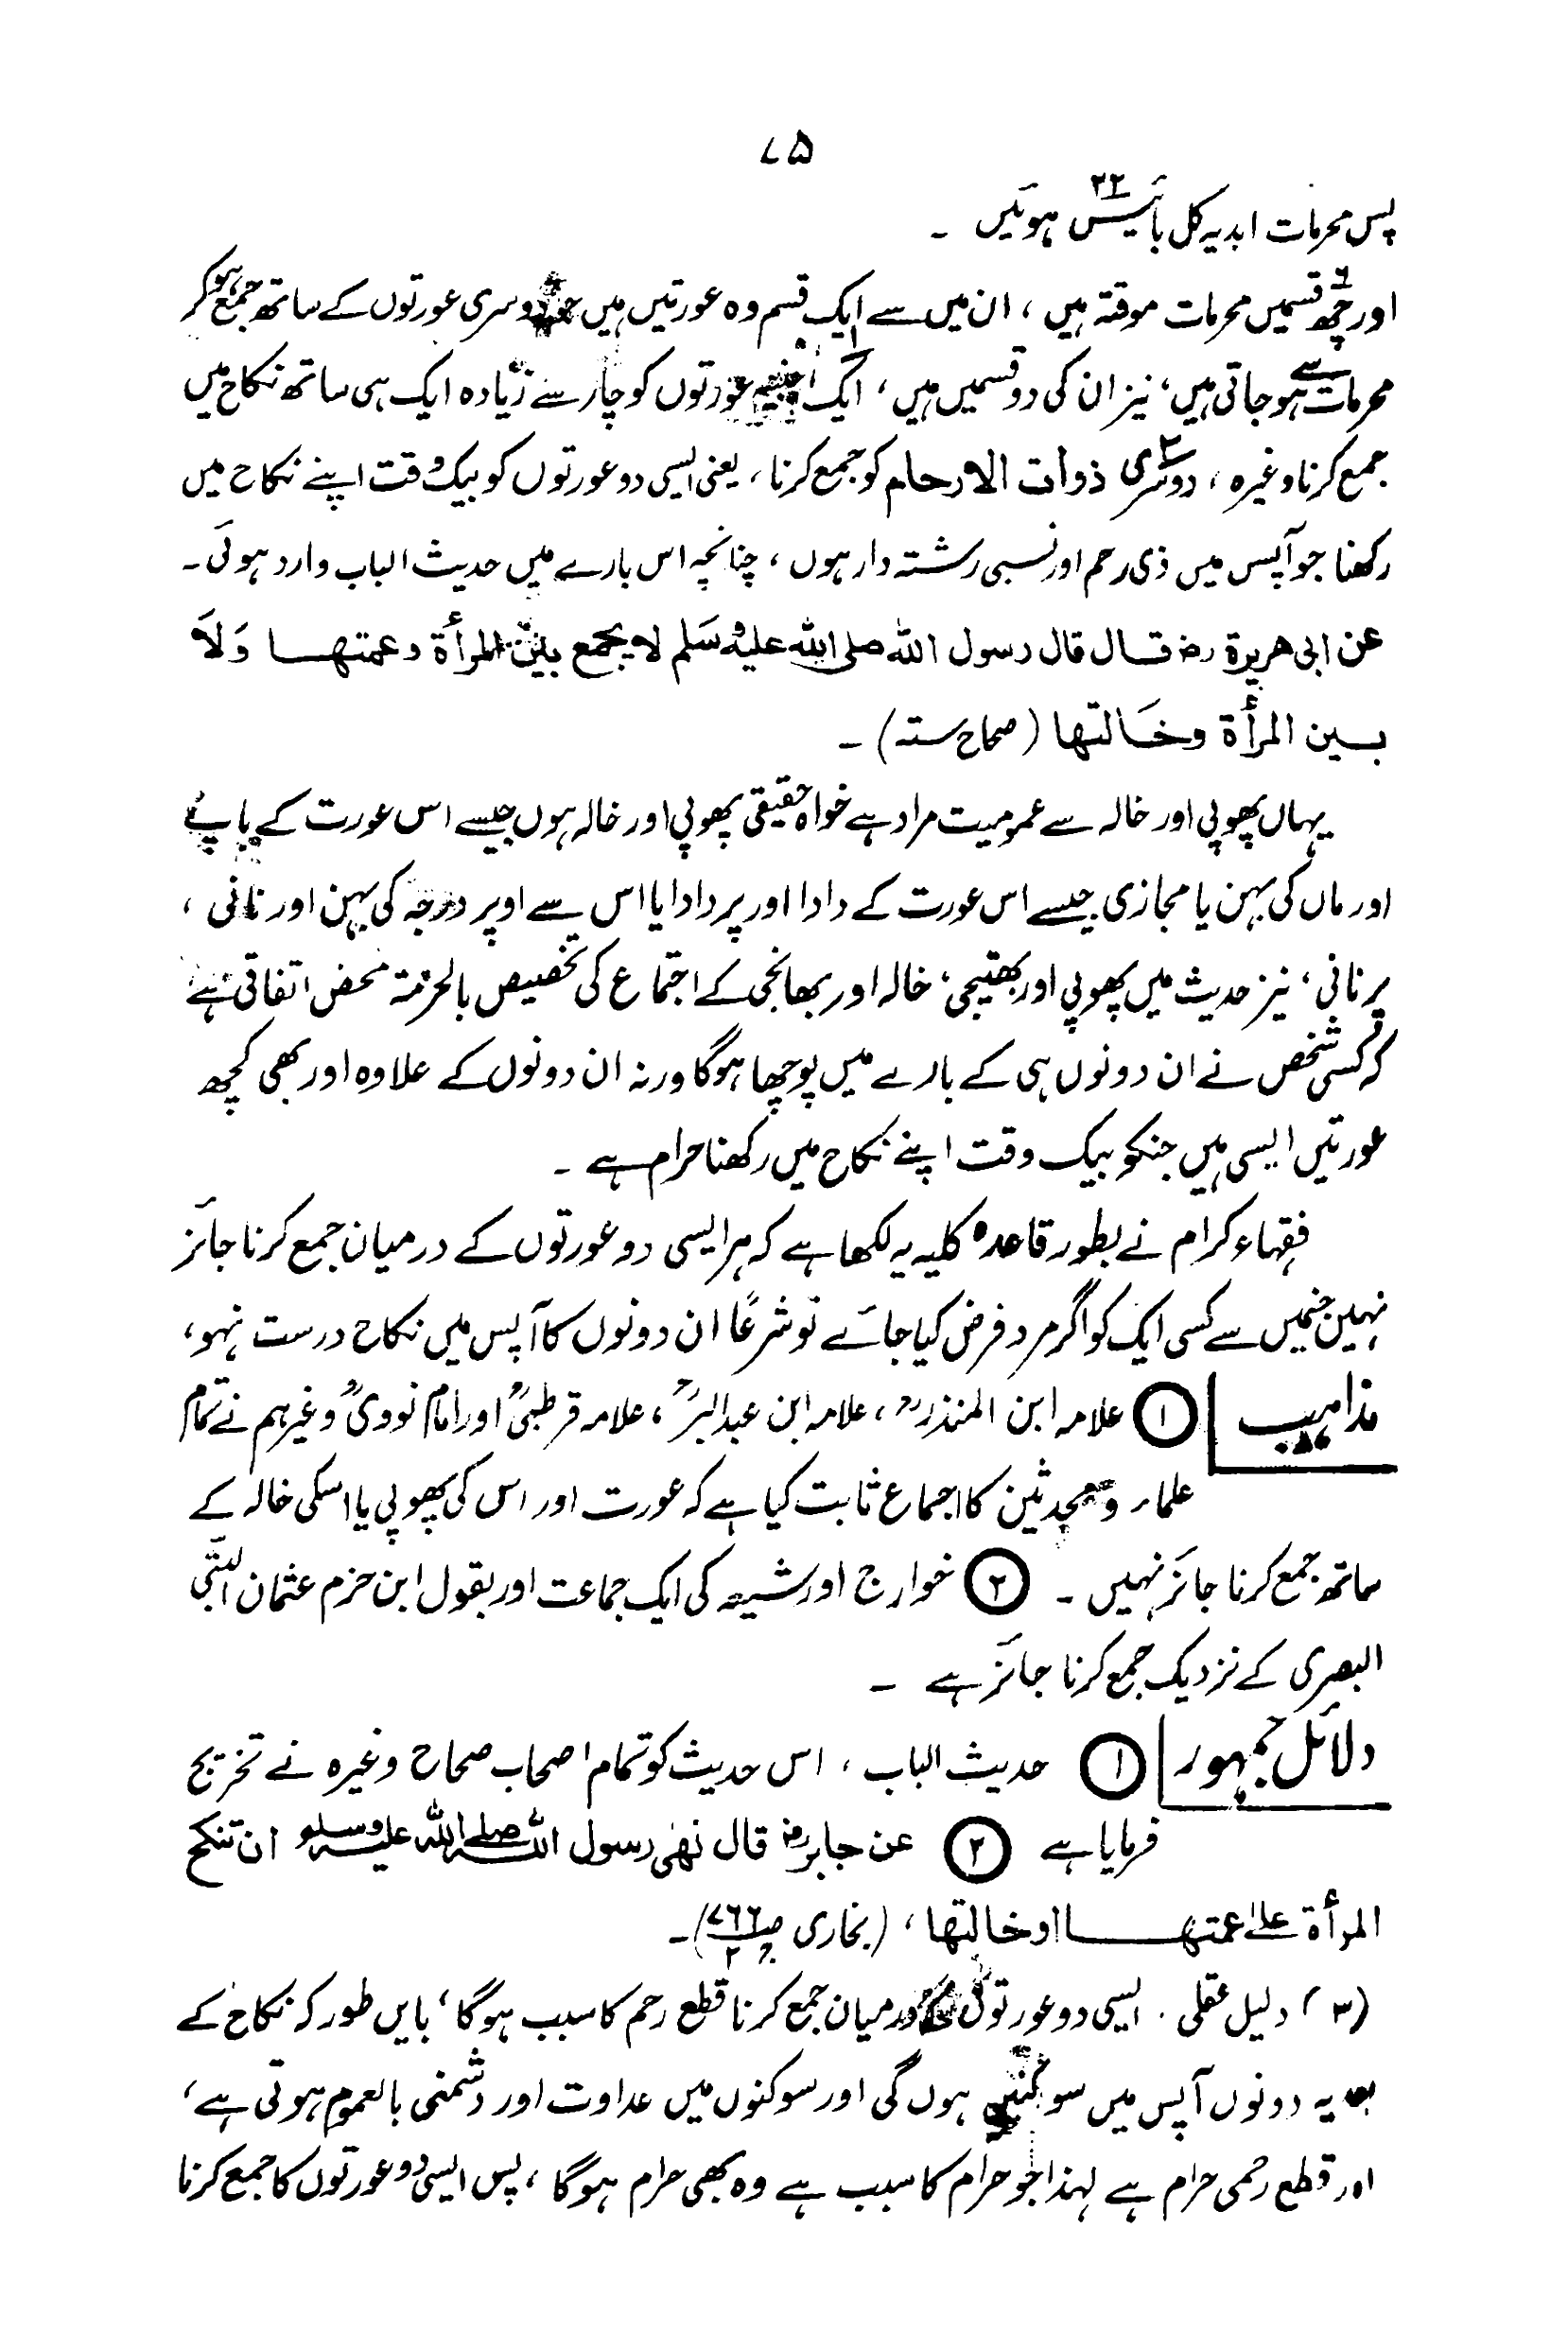 ۷۵
پس محرمات ابدیہ کل بائیس ۲۲ ہوئیں ۔
اور چھ۶ قسمیں محرمات موقتہ ہیں ، ان میں سے ایک قسم وہ عورتیں ہیں جو دوسری عورتوں کے ساتھ جمع ہو کر
محرمات سے ہو جاتی ہیں ، نیز ان کی دو قسمیں ہیں ، ایک۱ اجنبیہ عورتوں کو چار سے زیادہ ایک ہی ساتھ نکاح میں
جمع کرنا وغیرہ ، دوسری۲ ذوات الارحام کو جمع کرنا ، یعنی ایسی دو عورتوں کو بیک وقت اپنے نکاح میں
رکھنا جو آپس میں ذی رحم اور نسبی رشتہ دار ہوں ، چنانچہ اس بارے میں حدیث الباب وارد ہوئی ۔
عن ابی ھریرة رض قال قال رسول اللہ صلی اللہ علیہ وسَلم لا یجمع بین المرأة وعمتھا وَلاَ
بین المرأة وخَالتھا (صحاح ستہ) ۔
یہاں پھوپی اور خالہ سے عمومیت مراد ہے خواہ حقیقی پھوپی اور خالہ ہوں جیسے اس عورت کے باپ
اور ماں کی بہن یا مجازی جیسے اس عورت کے دادا اور پر دادا یا اس سے اوپر درجہ کی بہن اور نانی ،
پرنانی ، نیز حدیث میں پھوپی اور بھتیجی ، خالہ اور بھانجی کے اجتماع کی تخصیص بالحرمۃ محض اتفاقی ہے
کہ کسی شخص نے ان دونوں ہی کے بارے میں پوچھا ہوگا ورنہ ان دونوں کے علاوہ اور بھی کچھ
عورتیں ایسی ہیں جنکو بیک وقت اپنے نکاح میں رکھنا حرام ہے ۔
فقہاء کرام نے بطور قاعدہ کلیہ یہ لکھا ہے کہ ہر ایسی دو عورتوں کے درمیان جمع کرنا جائز
نہیں جنمیں سے کسی ایک کو اگر مرد فرض کیا جائے تو شرعًا ان دونوں کا آپس میں نکاح درست نہو ،
مذاہب | ① علامہ ابن المنذرؒ ، علامہ ابن عبدالبرؒ ، علامہ قرطبیؒ اور امام نوویؒ وغیرہم نے تمام
علماء و محدثین کا اجماع ثابت کیا ہے کہ عورت اور اس کی پھوپی یا اسکی خالہ کے
ساتھ جمع کرنا جائز نہیں ۔ ② خوارج اور شیعہ کی ایک جماعت اور بقول ابن حزم عثمان البتّی
البصری کے نزدیک جمع کرنا جائز ہے ۔
دلائل جمہور | ① حدیث الباب ، اس حدیث کو تمام اصحاب صحاح وغیرہ نے تخریج
فرمایا ہے ② عن جابرؓ قال نھٰی رسول اللہ صلی اللہ علیہ وسلم ان تنکح
المرأة علیٰ عمتھا او خالتھا ، (بخاری ص۷۶۶ ج۲) ۔
(۳) دلیل عقلی . ایسی دو عورتوں کے درمیان جمع کرنا قطع رحم کا سبب ہوگا ، بایں طور کہ نکاح کے
بعد یہ دونوں آپس میں سوکنیں ہوں گی اور سوکنوں میں عداوت اور دشمنی بالعموم ہوتی ہے ،
اور قطع رحمی حرام ہے لہذا جو حرام کا سبب ہے وہ بھی حرام ہوگا ، پس ایسی دو عورتوں کا جمع کرنا